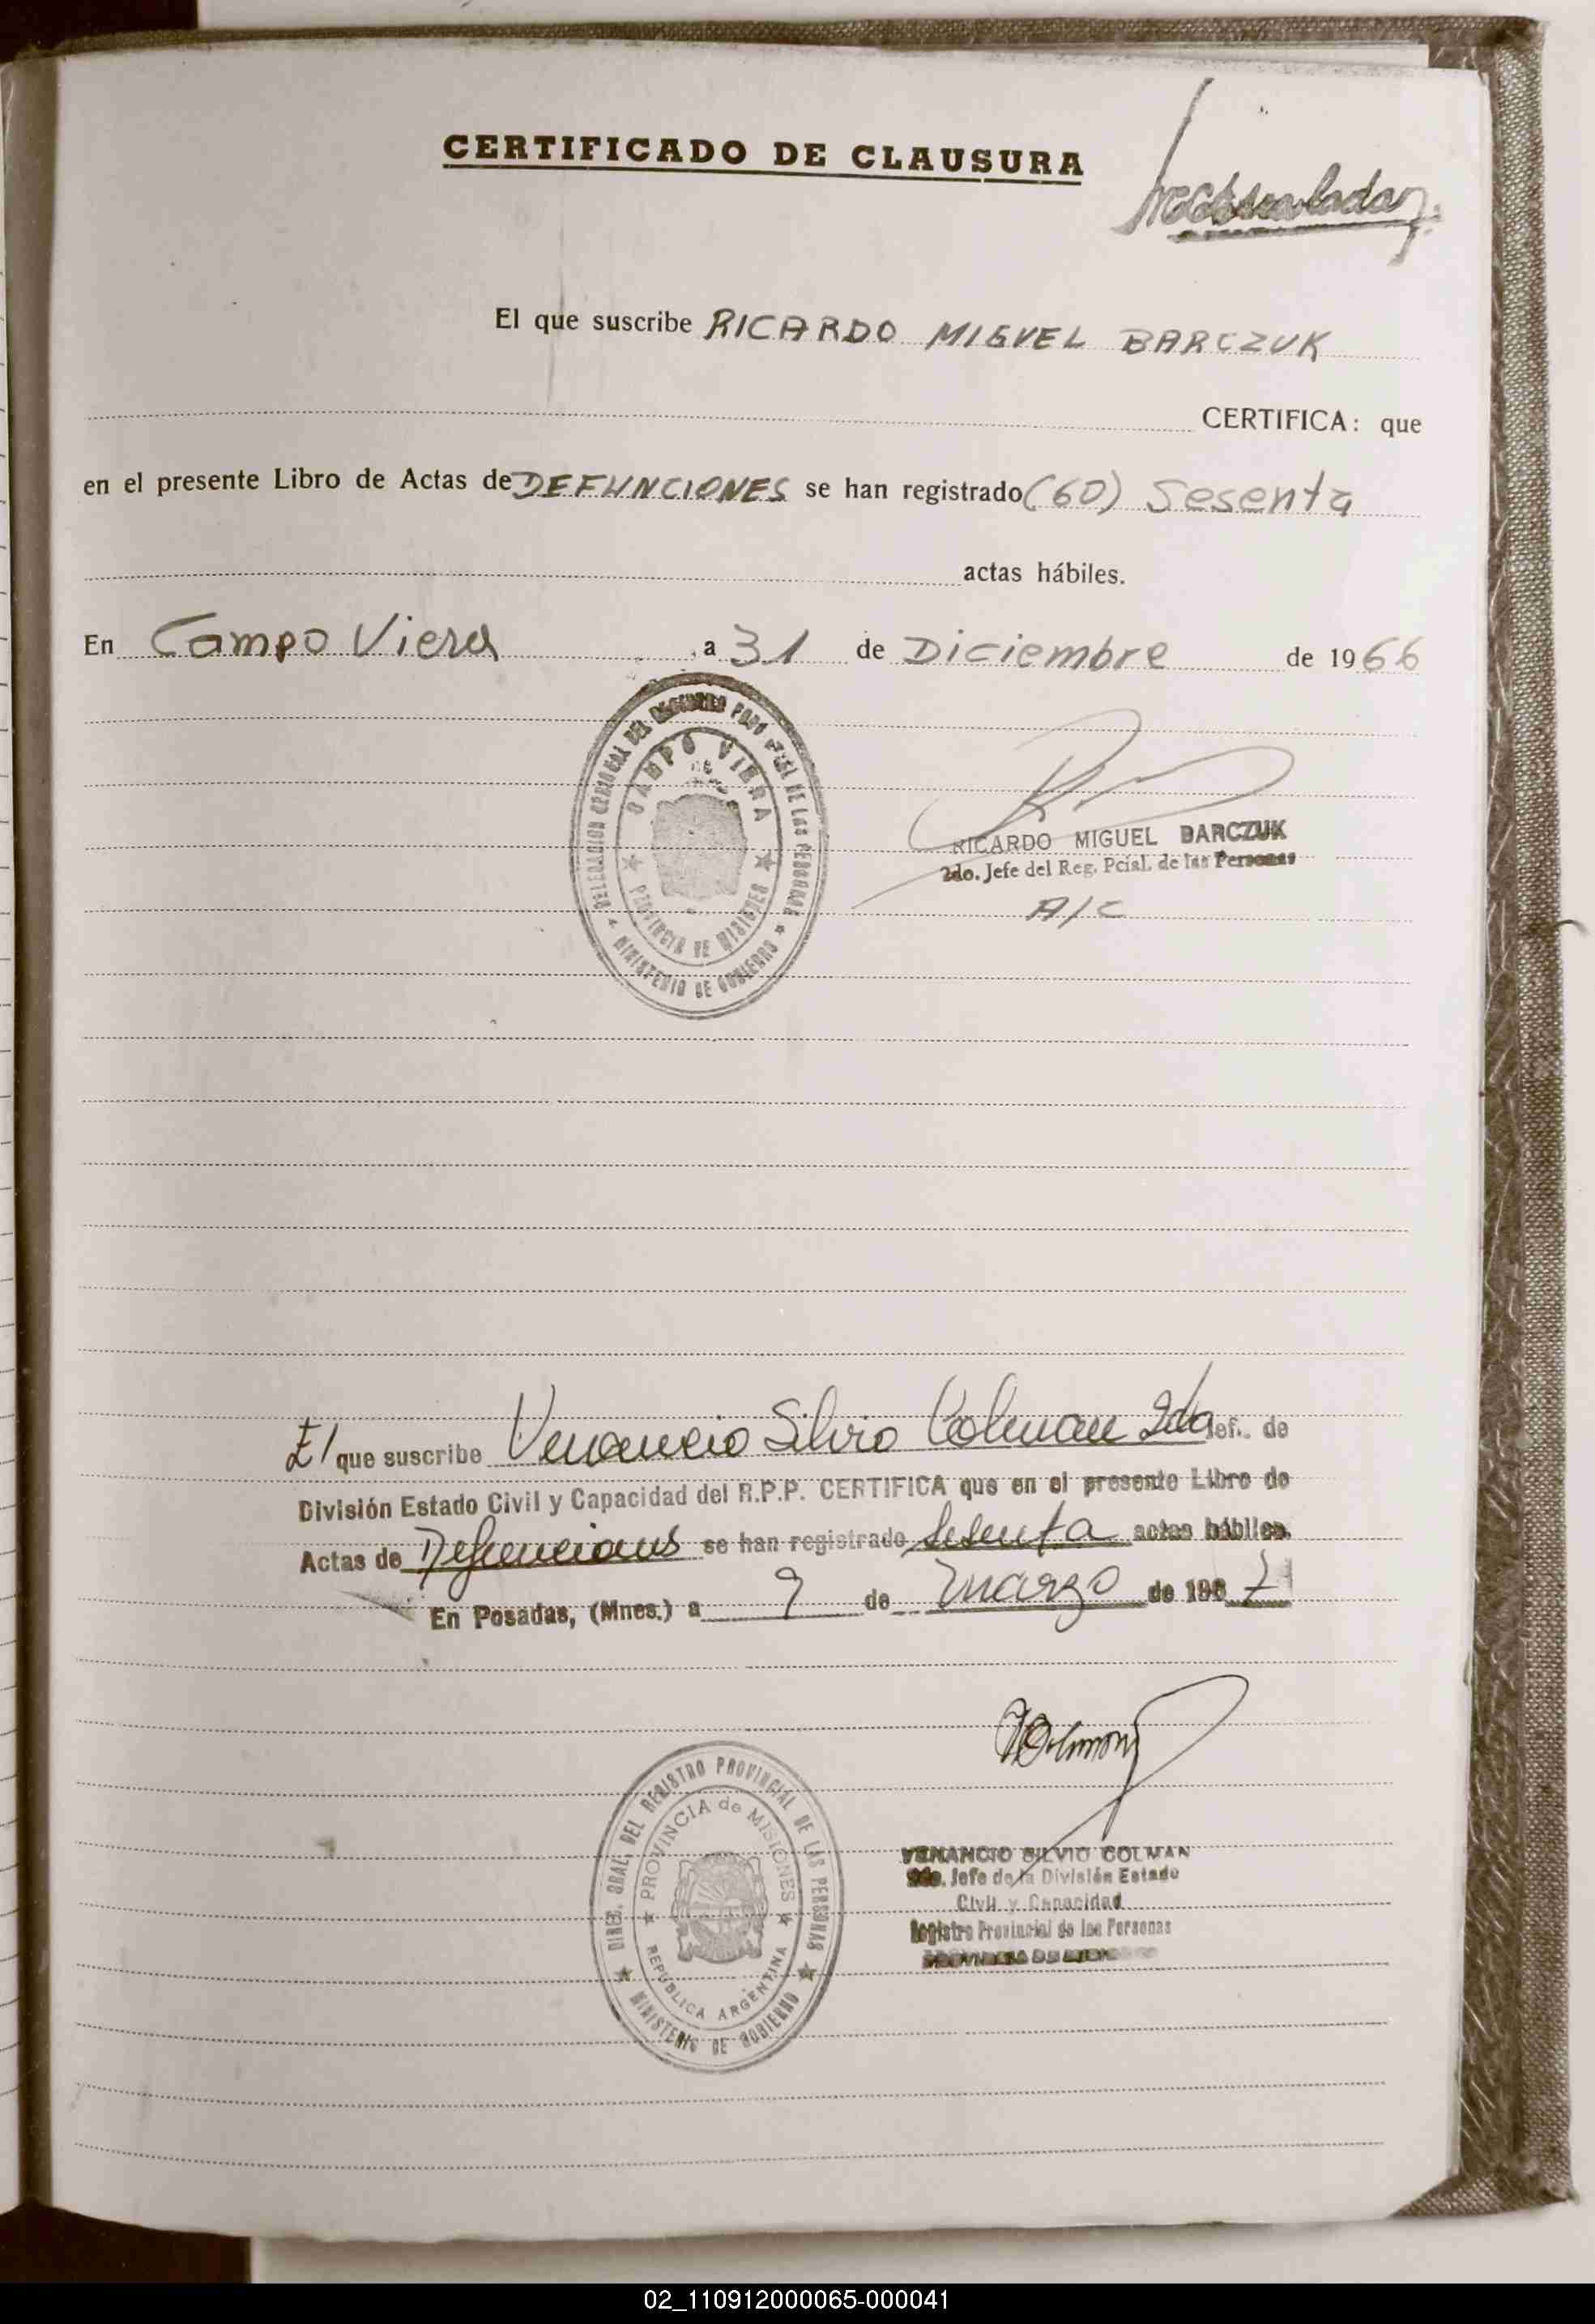 CERTIFICADO DE CLAUSURA
El que suscribe RICARDO MIGUEL BARCZUK
CERTIFICA: que
en el presente Libro de Actas de DEFUNCIONES se han registrado (60) Sesenta
actas hábiles.
En Campo Viera, a 31 de Diciembre de 1966
DELEGACION SECCIONAL DEL REGISTRO PROVINCIAL DE LAS PERSONAS
CAMPO VIERA
PROVINCIA DE MISIONES
MINISTERIO DE GOBIERNO
RICARDO MIGUEL BARCZUK
2do. Jefe del Reg. Pcial. de las Personas
A/C
El que suscribe Venancio Silvio Colman 2do Jef. de
División Estado Civil y Capacidad del R.P.P. CERTIFICA que en el presente Libro de
Actas de Defunciones se han registrado Sesenta actas hábiles.
En Posadas, (Mnes.) a 9 de marzo de 1967
DIREC. GRAL. DEL REGISTRO PROVINCIAL DE LAS PERSONAS
PROVINCIA de MISIONES
REPUBLICA ARGENTINA
MINISTERIO DE GOBIERNO
VENANCIO SILVIO COLMAN
2do. Jefe de la División Estado
Civil y Capacidad
Registro Provincial de las Personas
PROVINCIA DE MISIONES
02_110912000065-000041